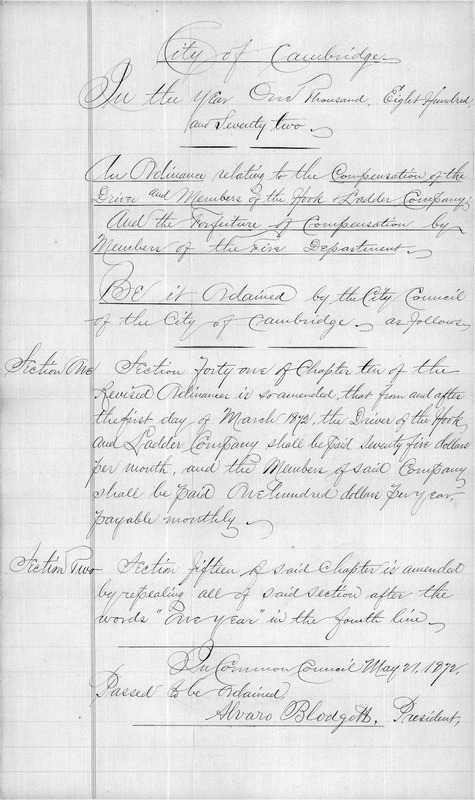 City of Cambridge
In the Year One Thousand, Eight Hundred
and Seventy two.
An Ordinance relating to the Compensation of the
Driver and Members of the Hook & Ladder Company;
And the Forfeiture of Compensation by
Members of the Fire Department.
BE it Ordained by the City Council
of the City of Cambridge. as follows,
Section One Section Forty one of Chapter ten of the
Revised Ordinances is so amended, that from and after
the first day of March 1872, the Driver of the Hook
and Ladder Company shall be paid Seventy five dollars
per month, and the Members of said Company
shall be paid One hundred dollars per year,
payable monthly.
Section Two Section fifteen of said Chapter is amended
by repealing all of said section after the
words "One year" in the fourth line.
In Common Council May 21, 1872.
Passed to be Ordained,
Alvaro Blodgett, President,